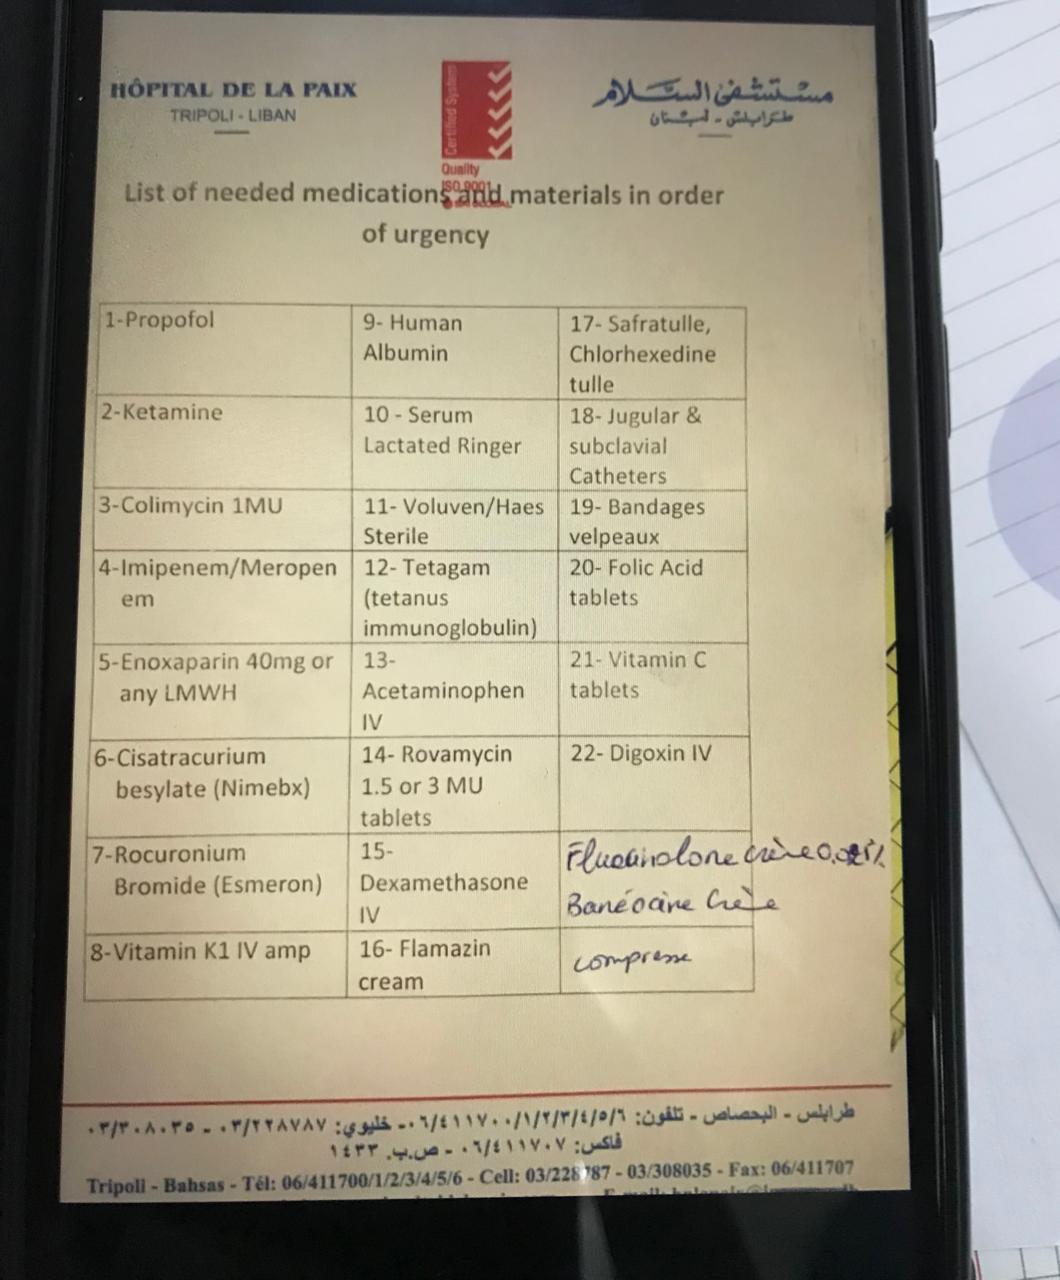 HÔPITAL DE LA PAIX
TRIPOLI - LIBAN
Certified System
Quality
ISO 9001
مستشفى السلام
طرابلس - لبنان
List of needed medications and materials in order
of urgency
1-Propofol
9- Human
Albumin
17- Safratulle,
Chlorhexedine
tulle
2-Ketamine
10 - Serum
Lactated Ringer
18- Jugular &
subclavial
Catheters
3-Colimycin 1MU
11- Voluven/Haes
Sterile
19- Bandages
velpeaux
4-Imipenem/Meropen
em
12- Tetagam
(tetanus
immunoglobulin)
20- Folic Acid
tablets
5-Enoxaparin 40mg or
any LMWH
13-
Acetaminophen
IV
21- Vitamin C
tablets
6-Cisatracurium
besylate (Nimebx)
14- Rovamycin
1.5 or 3 MU
tablets
22- Digoxin IV
7-Rocuronium
Bromide (Esmeron)
15-
Dexamethasone
IV
crème
Banéocine Crème
8-Vitamin K1 IV amp
16- Flamazin
cream
compresse
طرابلس - البحصاص - تلفون: ٠٦/٤١١٧٠٠/١/٢/٣/٤/٥/٦ - خليوي: ٠٣/٢٢٨٧٨٧ - ٠٣/٣٠٨٠٣٥
فاكس: ٠٦/٤١١٧٠٧ - ص.ب. ١٤٣٣
Tripoli - Bahsas - Tél: 06/411700/1/2/3/4/5/6 - Cell: 03/228787 - 03/308035 - Fax: 06/411707